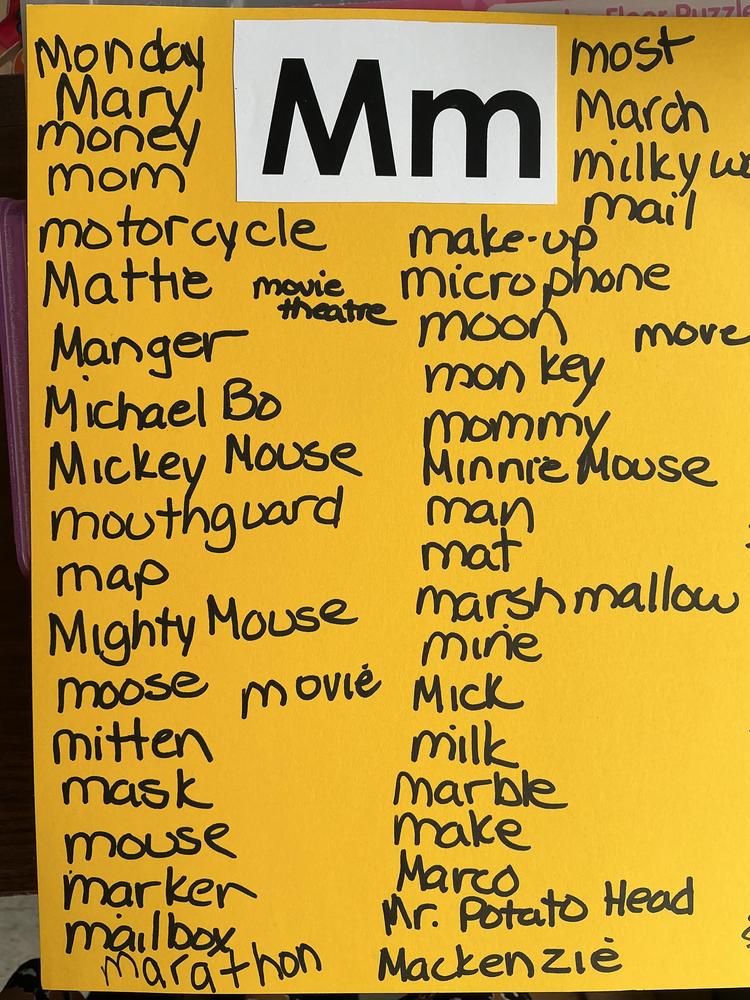 Floor Puzzle
Mm
Monday
Mary
money
mom
motorcycle
Mattie
movie
theatre
Manger
Michael Bo
Mickey Mouse
mouthguard
map
Mighty Mouse
moose
movie
mitten
mask
mouse
marker
mailbox
marathon
most
March
milky
mail
make-up
microphone
moon
move
monkey
mommy
Minnie Mouse
man
mat
marshmallow
mine
Mick
milk
Marble
make
Marco
Mr. Potato Head
Mackenzie